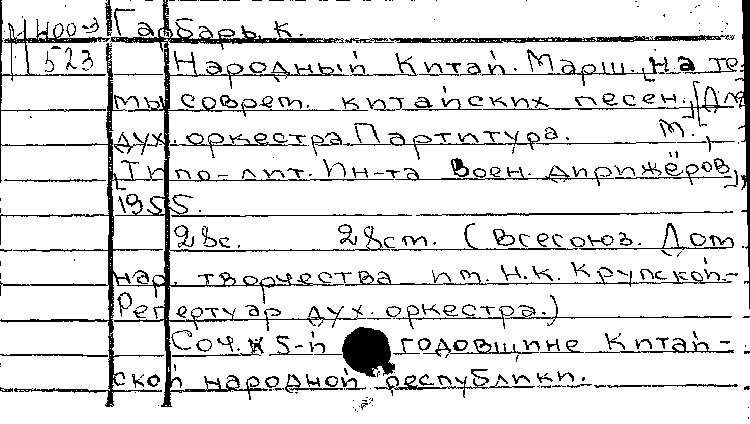 М 400-9 Гарбарь, К.
11 523 Народный Китай. Марш. [на те-
мы соврет. китайских песен.] [Для
дух. оркестра. Партитура. М.,
[Типо-лит. Ин-та воен. дирижёров],
1955.
28с. 28см. (Всесоюз. Дом
нар. творчества им. Н.К. Крупской.-
Репертуар дух. оркестра.)
Соч. к 5-й годовщине Китай-
ской народной республики.